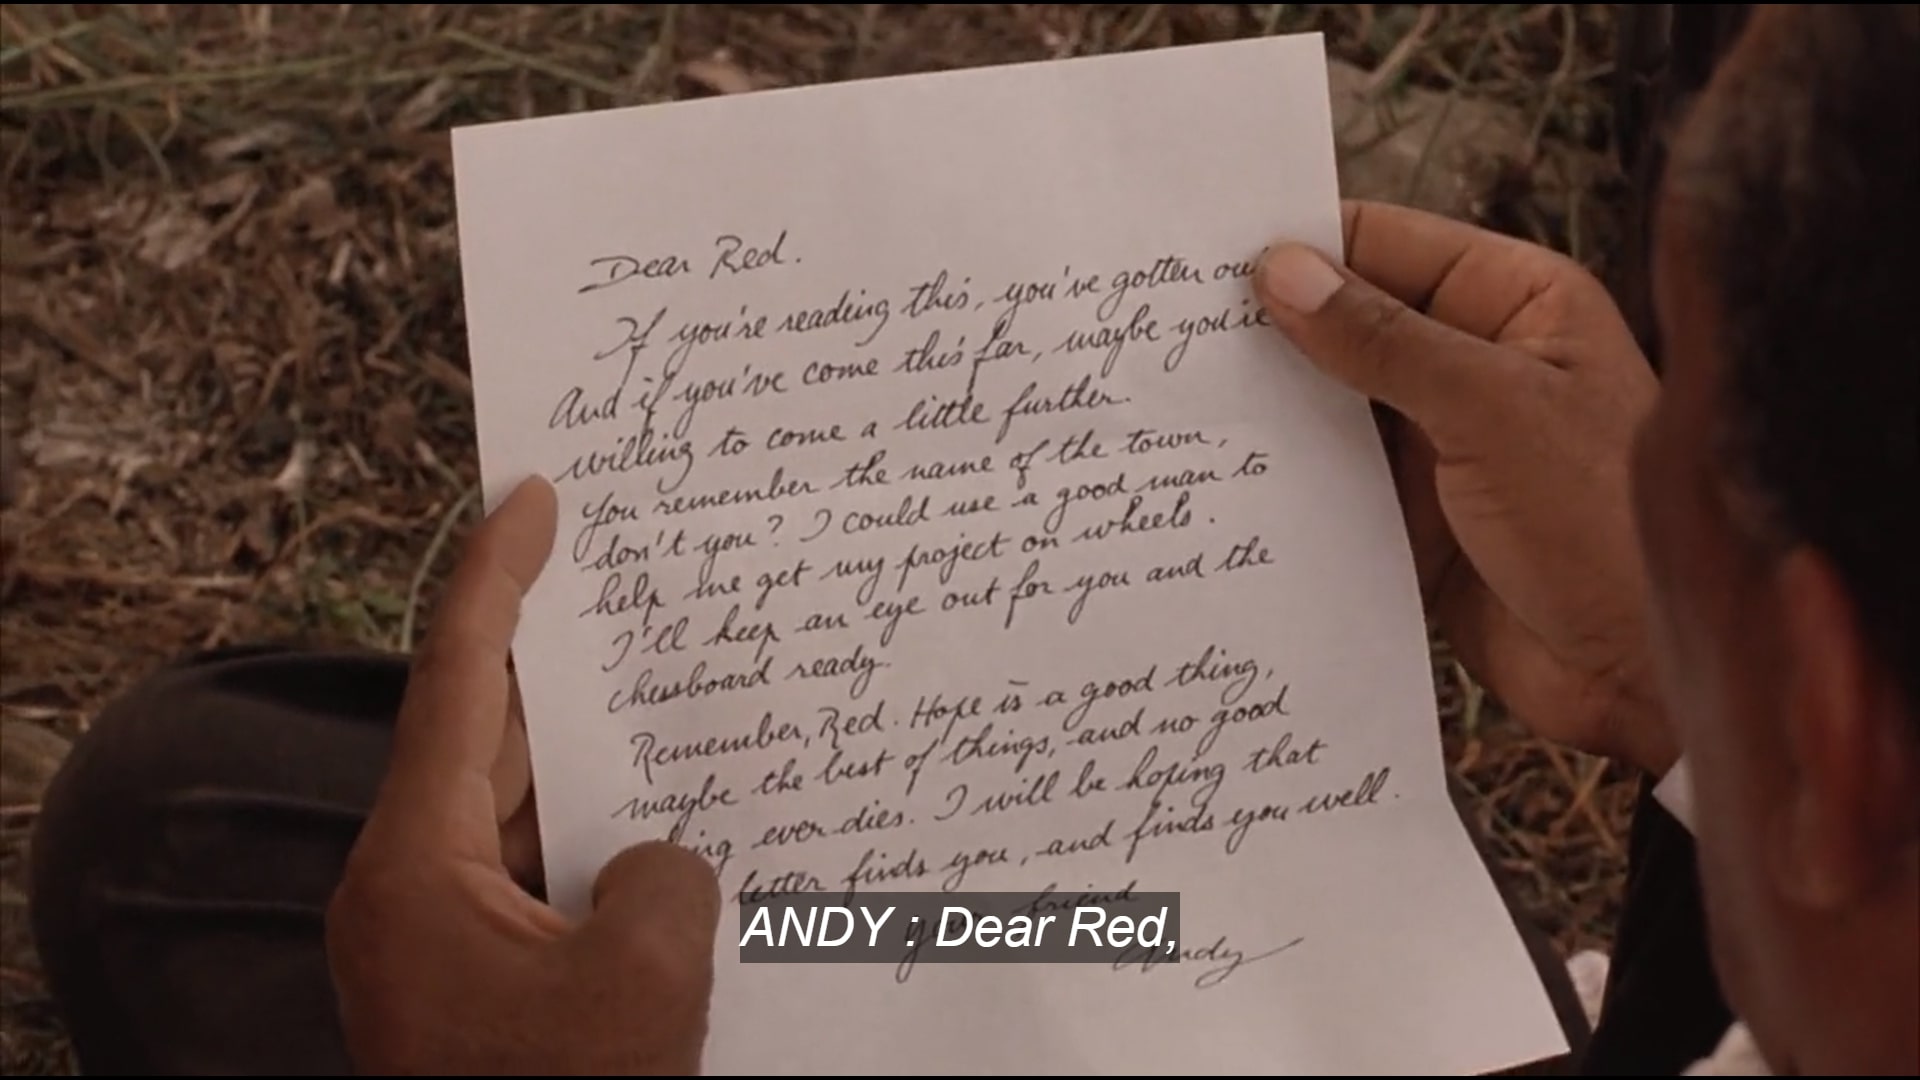 Dear Red.
If you're reading this, you've gotten out
And if you've come this far, maybe you're
willing to come a little further.
You remember the name of the town,
don't you? I could use a good man to
help me get my project on wheels.
I'll keep an eye out for you and the
chessboard ready.
Remember, Red. Hope is a good thing,
maybe the best of things, and no good
thing ever dies. I will be hoping that
letter finds you, and finds you well.
your friend
Andy
ANDY : Dear Red,